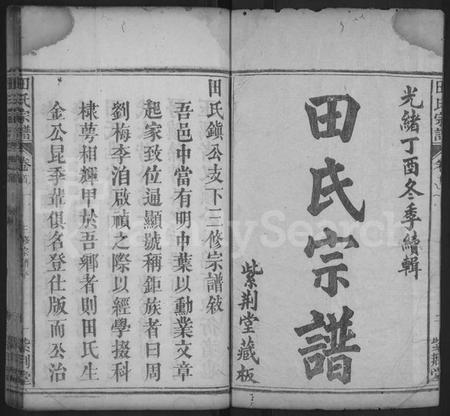 光緒丁酉冬季續輯
田氏宗譜
紫荊堂藏板
田氏鎮公支下三修宗譜敍
吾邑中當有明中葉以勳業文章
起家致位通顯號稱鉅族者曰周
劉梅李洎啟禎之際以經學掇科
棣萼相輝甲於吾鄉者則田氏生
金公昆季輩俱名登仕版而公治
田氏宗譜
卷首
紫荊堂
田氏宗譜
紫荊堂
FamilySearch